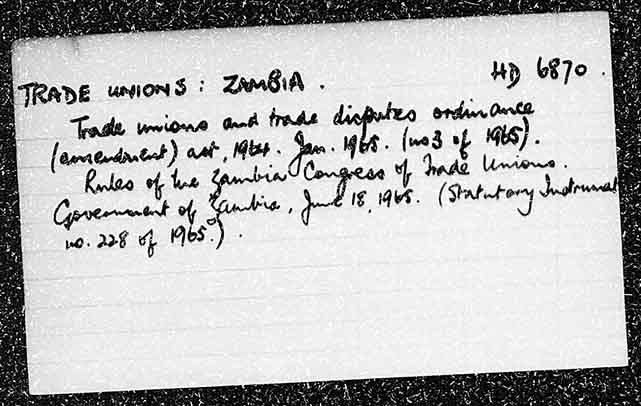 TRADE UNIONS : ZAMBIA . HD 6870 .
Trade unions and trade disputes ordinance
(amendment) act, 1964. Jan. 1965. (no 3 of 1965).
Rules of the Zambia Congress of Trade Unions.
Government of Zambia, June 18, 1965. (Statutory Instrument
no. 228 of 1965.) .